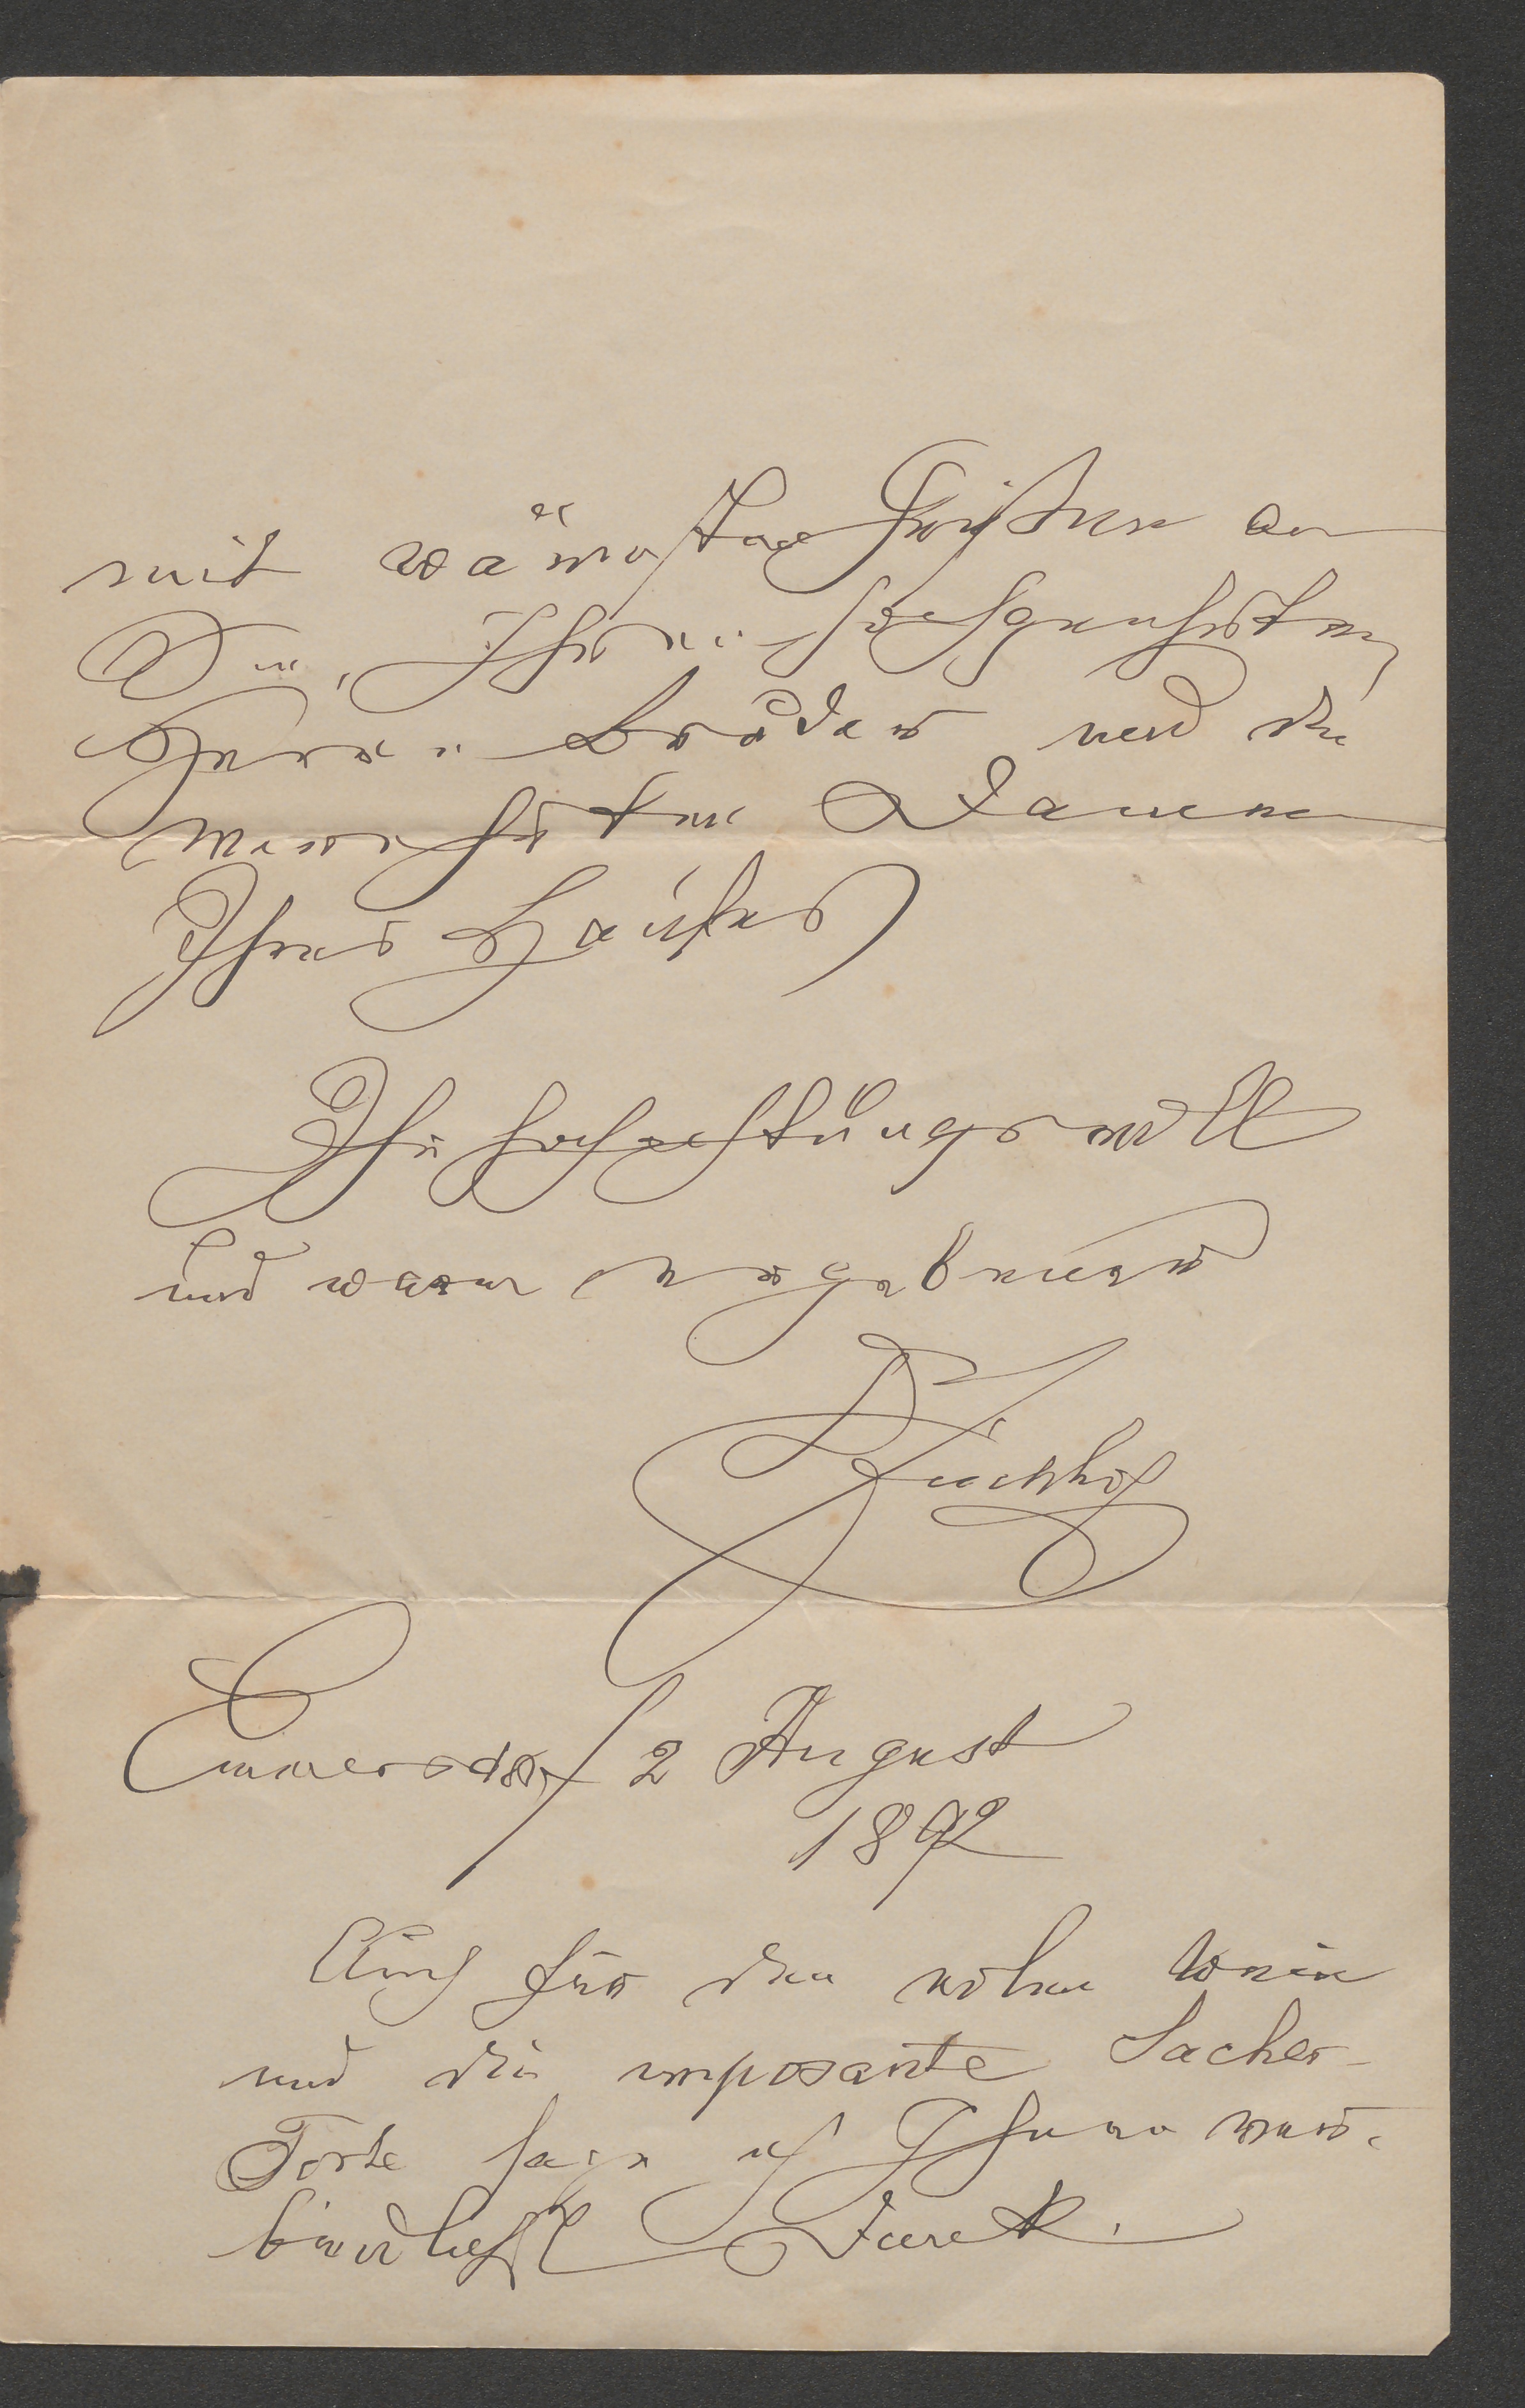 mit wärmsten Grüßen an
Sie, Ihren hochgeehrten
Herrn Bruder und die
verehrten Damen
Ihres Hauses
Ihr hochachtungsvoll
und warm ergebener
Emmersdorf 2 August
1892
Auch für den edlen Wein
und die imposante Sacher-
Torte sage ich Ihnen ver-
bindlichst Dank.